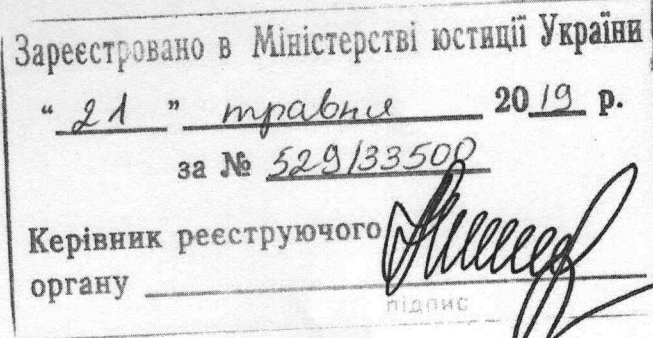 Зареєстровано в Міністерстві юстиції України
“ 21 ” травня 20 19 р.
за № 529/33500
Керівник реєструючого
органу
підпис